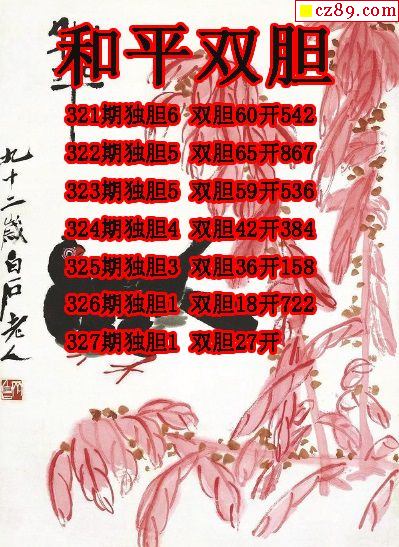 cz89.com
和平双胆
321期独胆6 双胆60开542
322期独胆5 双胆65开867
323期独胆5 双胆59开536
324期独胆4 双胆42开384
325期独胆3 双胆36开158
326期独胆1 双胆18开722
327期独胆1 双胆27开
九十二岁白石老人